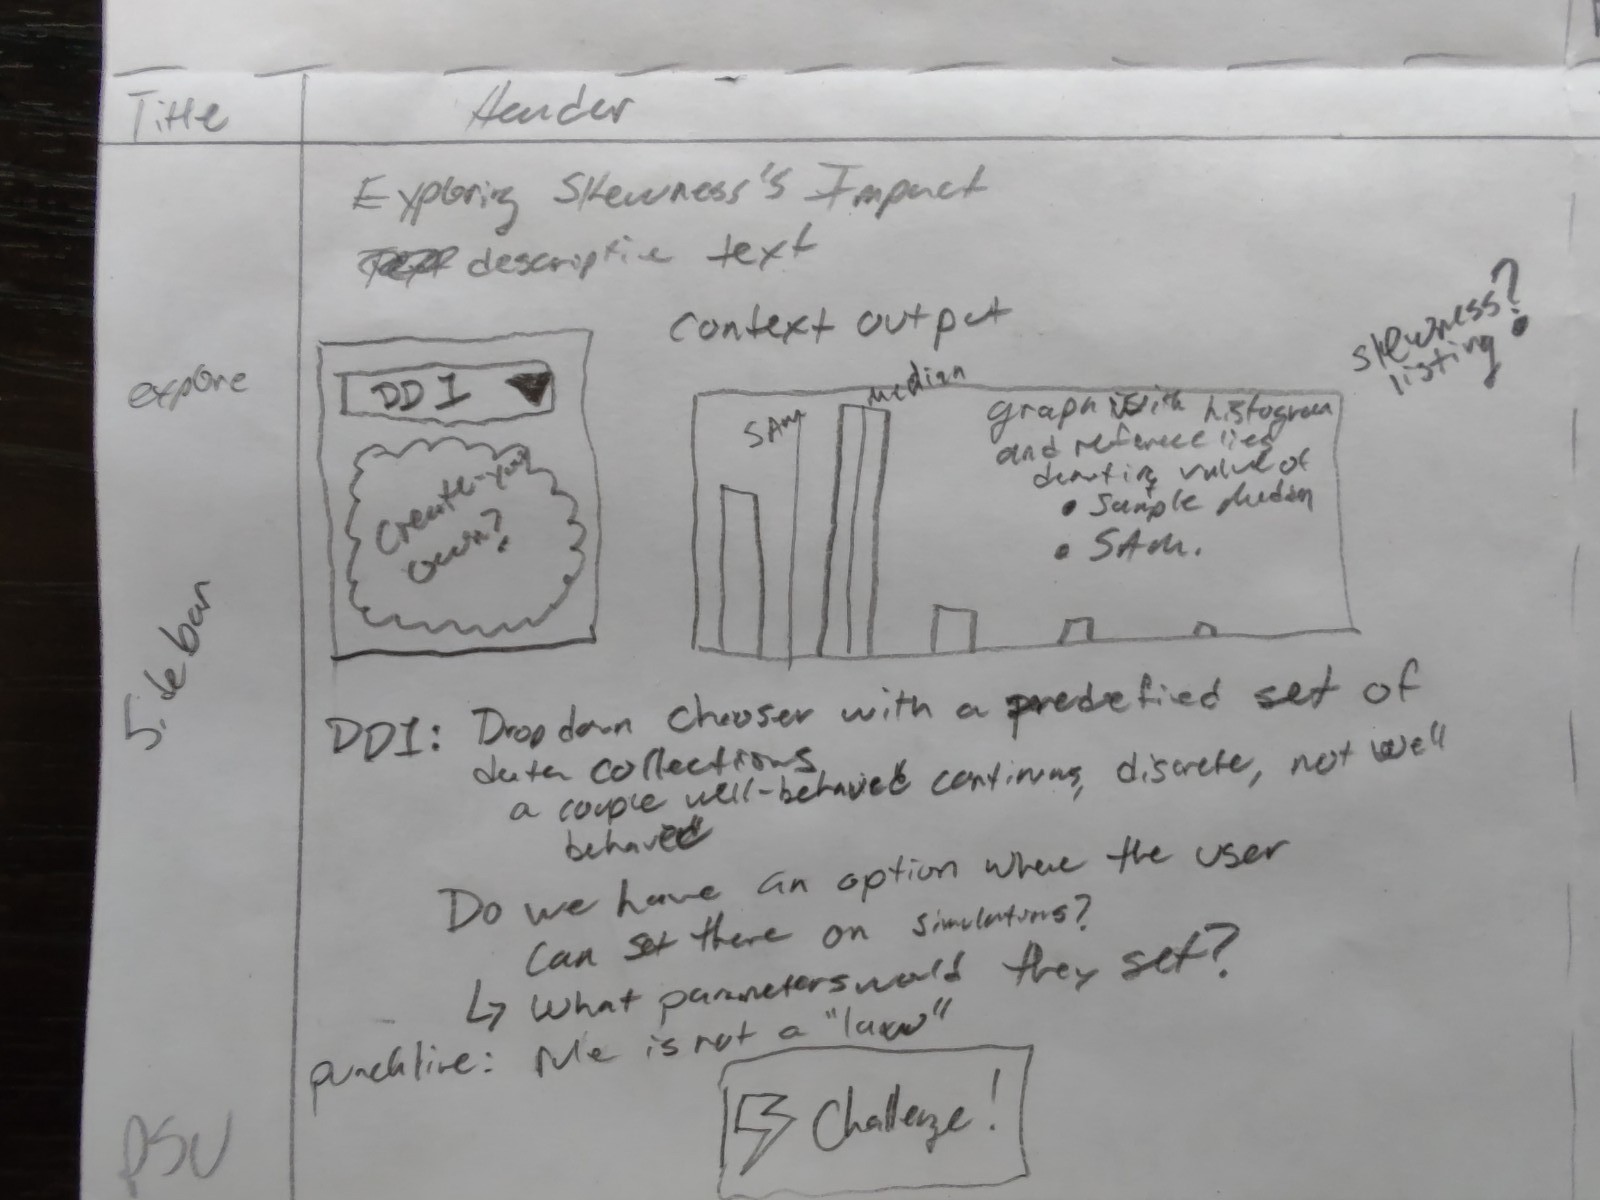 Title
Header
Exploring Skewness's Impact
descriptive text
Context output
skewness?
listing
explore
DD1
Create-your
own?
SAM
median
graph with histogram
and reference lies
denoting value of
• Sample Median
• SAM.
Sidebar
DD1: Drop down chooser with a predefied set of
data collections
a couple well-behaved continuous, discrete, not well
behaved
Do we have an option where the user
can set there on simulations?
↳ What parameters would they set?
punchline: rule is not a "law"
Challenge!
PSU